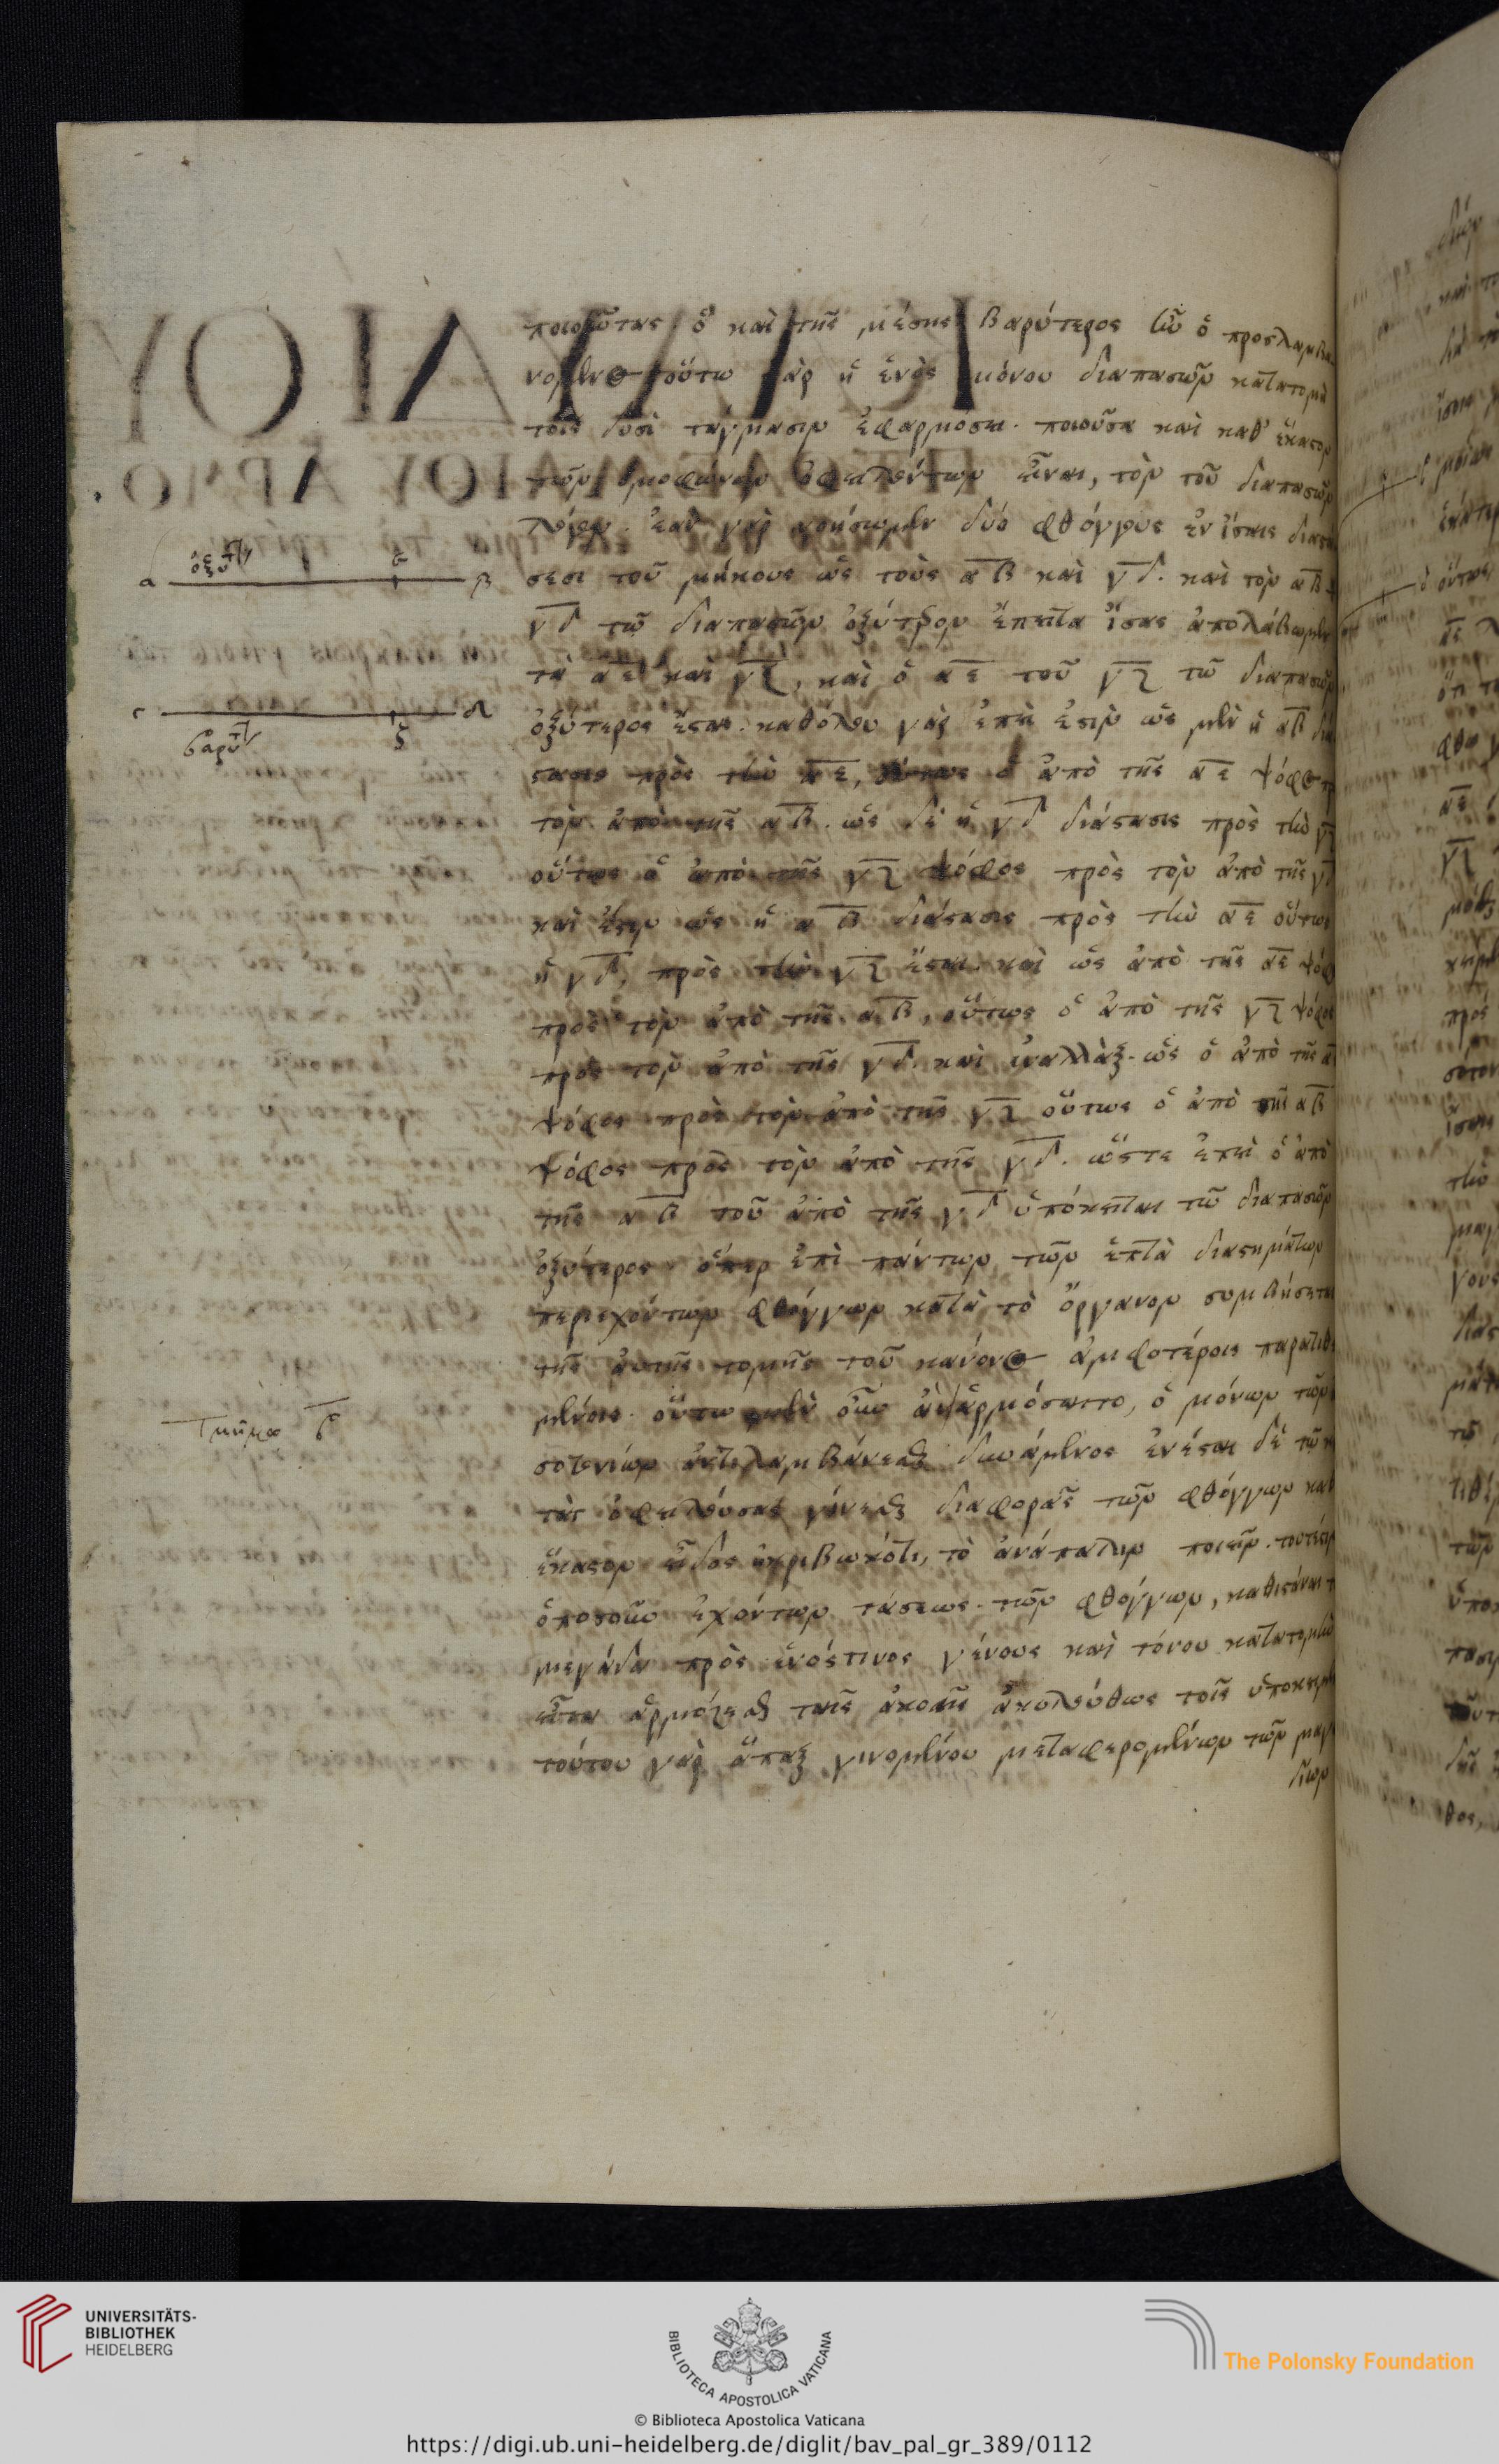 ποιοῦντας ὁ καὶ τῆς μέσης βαρύτερος ἦν ὁ προσλαμβα
νόμενος οὕτω γὰρ ἡ ἑνὸς μόνου διαπασῶν κατατομὴ
τοῖς δυσὶ τάγμασιν ἐφαρμόσει. ποιοῦσα καὶ καθ' ἕκαστον
τῶν ὁμοφώνων ὀφειλόντων εἶναι, τὸν τοῦ διαπασῶν
λόγον. ἐὰν γὰρ νοήσωμεν δύο φθόγγους ἐν ἴσαις διαστά
σεσι τοῦ μήκους ὡς τοὺς αβ καὶ γδ. καὶ τὸν αβ τ
γδ τῷ διαπασῶν ὀξύτερον ἔπειτα ἴσας ἀπολάβωμεν
τὰ αε καὶ γζ, καὶ ὁ αε τοῦ γζ τῷ διαπασῶν
ὀξύτερος ἔσται. καθόλου γὰρ ἐπεί ἐστιν ὡς μὲν ἡ αβ διά
στασις πρὸς τὴν αε, οὕτως ὁ ἀπὸ τῆς αε ψόφος π
τὸν ἀπὸ τῆς αβ. ὡς δὲ ἡ γδ διάστασις πρὸς τὴν γζ
οὕτως ὁ ἀπὸ τῆς γζ ψόφος πρὸς τὸν ἀπὸ τῆς γδ
καὶ ἔστιν ὡς ἡ αβ διάστασις πρὸς τὴν αε οὕτως
ἡ γδ, πρὸς τὴν γζ ἔσται. καὶ ὡς ἀπὸ τῆς αε ψόφ
πρὸς τὸν ἀπὸ τῆς αβ, οὕτως ὁ ἀπὸ τῆς γζ ψόφος
πρὸς τὸν ἀπὸ τῆς γδ. καὶ ἐναλλὰξ. ὡς ὁ ἀπὸ τῆς αε
ψόφος πρὸς τὸν ἀπὸ τῆς γζ οὕτως ὁ ἀπὸ τῆς αβ
ψόφος πρὸς τὸν ἀπὸ τῆς γδ. ὥστε ἐπεὶ ὁ ἀπὸ
τῆς αβ τοῦ ἀπὸ τῆς γδ ὑπόκειται τῷ διαπασῶν
ὀξύτερος. ὅπερ ἐπὶ πάντων τῶν ἑπτὰ διαστημάτων
περιεχόντων φθόγγων κατὰ τὸ ὄργανον συμβήσεται
τῆς αὐτῆς τομῆς τοῦ κανόνος ἀμφοτέροις παρατιθε
μένης. οὕτω μὲν οὖν ἁρμόσαιτο, ὁ μόνων τῶν
ἀντιλαμβάνεσθαι δυνάμενος ἐνέσται δὲ τῷ
τὰς ὀφειλούσας γίνεσθαι διαφορὰς τῶν φθόγγων καθ
ἕκαστον εἶδος ἠκριβωκότι, τὸ ἀνάπαλιν ποιεῖν. τουτέστιν
ὁποσοῦν ἐχόντων τάσεως τῶν φθόγγων, καθιστάναι τ
μαγάδα πρὸς ἑνόστινος γένους καὶ τόνου κατατομὴν
εἶτα ἁρμόζεσθαι ταῖς ἀκοαῖς ἀκολούθως τοῖς ὑποκειμέ
τούτου γὰρ ἅπαξ γινομένου μεταφερομένων τῶν μαγα
δίων
α ὀξύτ ε β
γ βαρύτ ζ δ
Τμῆμα
UNIVERSITÄTS-
BIBLIOTHEK
HEIDELBERG
BIBLIOTECA APOSTOLICA VATICANA
The Polonsky Foundation
© Biblioteca Apostolica Vaticana
https://digi.ub.uni-heidelberg.de/diglit/bav_pal_gr_389/0112